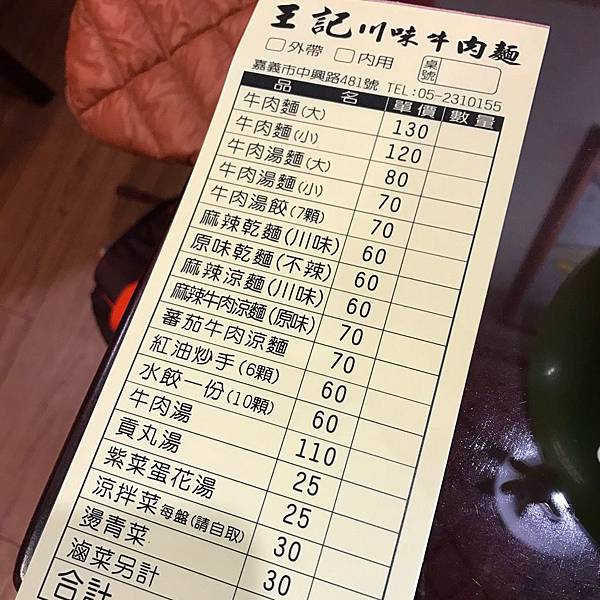 王記川味牛肉麵
□外帶 □內用 桌號
嘉義市中興路481號 TEL:05-2310155
品名 單價 數量
牛肉麵(大) 130
牛肉麵(小) 120
牛肉湯麵(大) 80
牛肉湯麵(小) 70
牛肉湯餃(7顆) 70
麻辣乾麵(川味) 60
原味乾麵(不辣) 60
麻辣涼麵(川味) 60
麻辣牛肉涼麵(原味) 70
蕃茄牛肉涼麵 70
紅油炒手(6顆) 60
水餃一份(10顆) 60
牛肉湯 110
貢丸湯 25
紫菜蛋花湯 25
涼拌菜每盤(請自取) 30
燙青菜 30
滷菜另計
合計